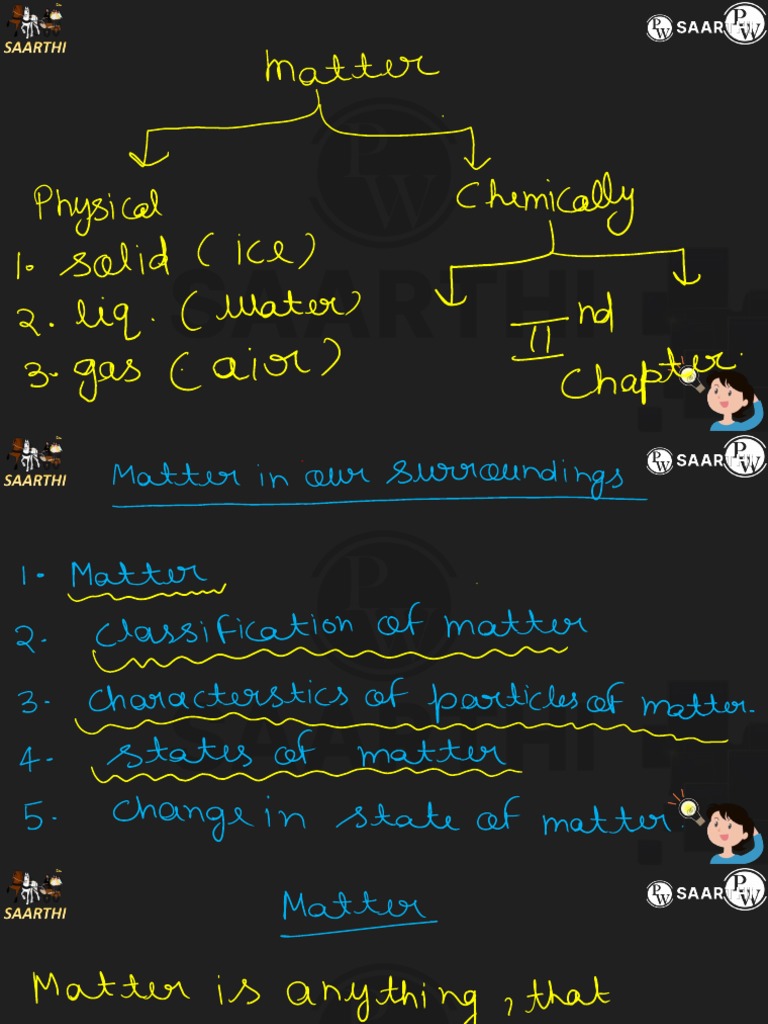 SAARTHI
PW SAARTHI PW
Matter
Physical
Chemically
1. solid (ice)
2. liq. (Water)
3. gas (air)
IInd
Chapter.
PW
SAARTHI
SAARTHI
PW SAARTHI PW
Matter in our surroundings
1. Matter
2. Classification of matter
3. Characterstics of particles of matter.
4. States of matter
5. Change in state of matter.
PW
SAARTHI
SAARTHI
PW SAARTHI PW
Matter
Matter is anything, that